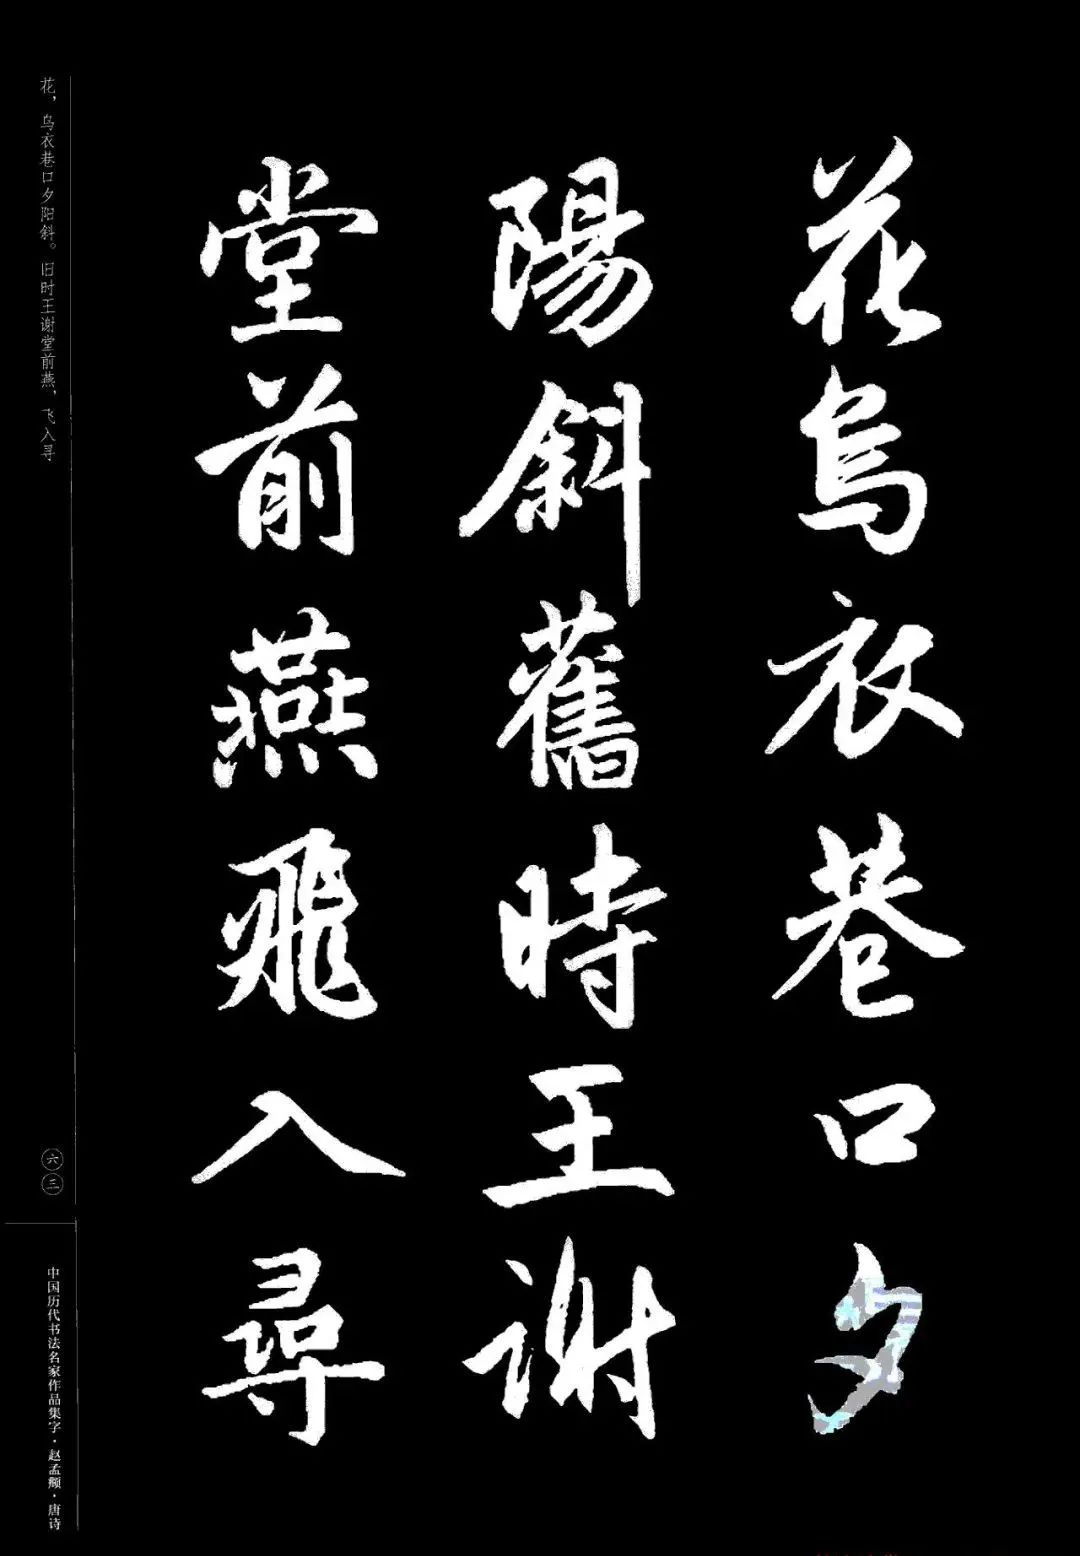 花烏衣巷口夕
陽斜舊時王謝
堂前燕飛入尋
花，乌衣巷口夕阳斜。旧时王谢堂前燕，飞入寻
六三
中国历代书法名家作品集字·赵孟頫·唐诗